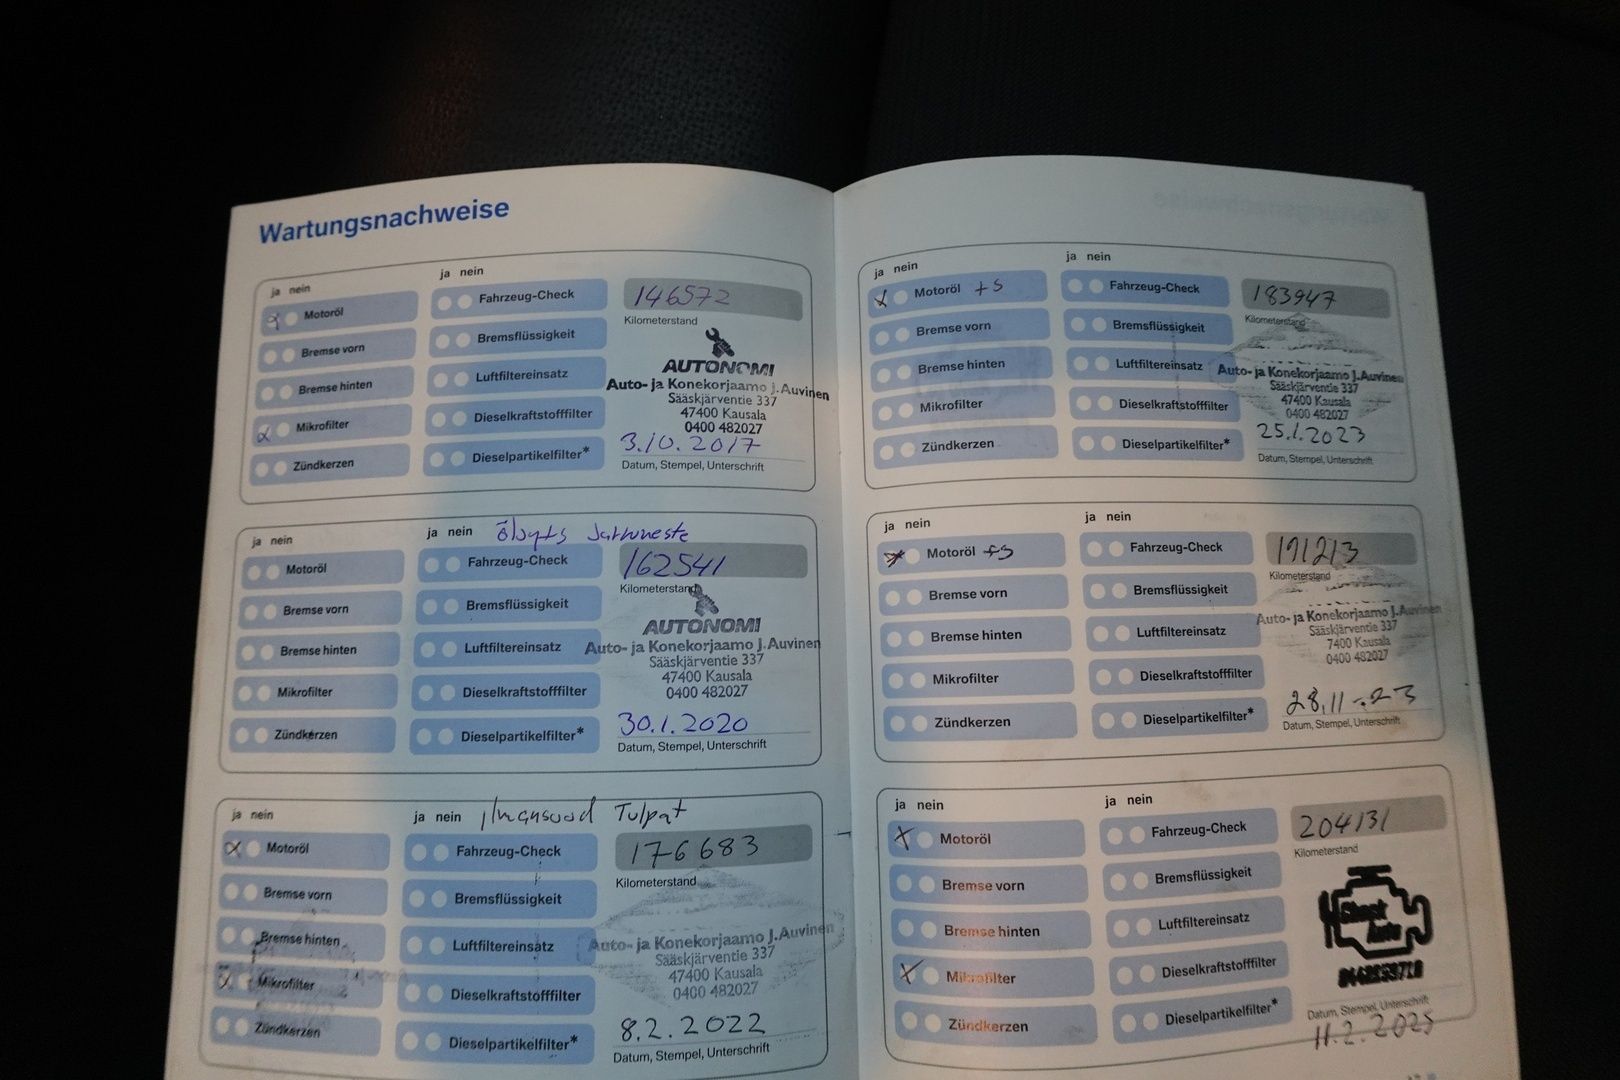 Wartungsnachweise
ja nein
ja nein
Motoröl
Fahrzeug-Check
146572
Kilometerstand
Bremse vorn
Bremsflüssigkeit
AUTONOMI
Bremse hinten
Luftfiltereinsatz
Auto- ja Konekorjaamo J.Auvinen
Sääskjärventie 337
Mikrofilter
Dieselkraftstofffilter
47400 Kausala
0400 482027
Zündkerzen
Dieselpartikelfilter*
3.10.2017
Datum, Stempel, Unterschrift
ja nein
ja nein
Motoröl
Fahrzeug-Check
162541
Kilometerstand
Bremse vorn
Bremsflüssigkeit
AUTONOMI
Bremse hinten
Luftfiltereinsatz
Auto- ja Konekorjaamo J.Auvinen
Sääskjärventie 337
Mikrofilter
Dieselkraftstofffilter
47400 Kausala
0400 482027
Zündkerzen
Dieselpartikelfilter*
30.1.2020
Datum, Stempel, Unterschrift
ja nein
ja nein
Tulpat
x Motoröl
Fahrzeug-Check
176683
Kilometerstand
Bremse vorn
Bremsflüssigkeit
Bremse hinten
Luftfiltereinsatz
Auto- ja Konekorjaamo J.Auvinen
Sääskjärventie 337
x Mikrofilter
Dieselkraftstofffilter
47400 Kausala
0400 482027
Zündkerzen
Dieselpartikelfilter*
8.2.2022
Datum, Stempel, Unterschrift
ja nein
ja nein
x Motoröl +S
Fahrzeug-Check
183947
Kilometerstand
Bremse vorn
Bremsflüssigkeit
Bremse hinten
Luftfiltereinsatz
Auto- ja Konekorjaamo J.Auvinen
Sääskjärventie 337
Mikrofilter
Dieselkraftstofffilter
47400 Kausala
0400 482027
Zündkerzen
Dieselpartikelfilter*
25.1.2023
Datum, Stempel, Unterschrift
ja nein
ja nein
x Motoröl +S
Fahrzeug-Check
191213
Kilometerstand
Bremse vorn
Bremsflüssigkeit
Bremse hinten
Luftfiltereinsatz
Auto- ja Konekorjaamo J.Auvinen
Sääskjärventie 337
Mikrofilter
Dieselkraftstofffilter
7400 Kausala
0400 482027
Zündkerzen
Dieselpartikelfilter*
28.11-.23
Datum, Stempel, Unterschrift
ja nein
ja nein
x Motoröl
Fahrzeug-Check
204131
Kilometerstand
Bremse vorn
Bremsflüssigkeit
Bremse hinten
Luftfiltereinsatz
Auto
x Mikrofilter
Dieselkraftstofffilter
Zündkerzen
Dieselpartikelfilter*
Datum, Stempel, Unterschrift
11.2.2025